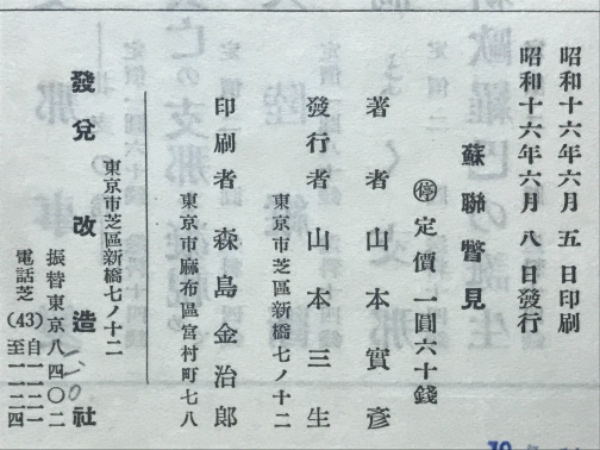 昭和十六年六月五日印刷
昭和十六年六月八日發行
蘇聯瞥見
㊡定價一圓六十錢
著者 山本實彦
發行者 山本三生
東京市芝區新橋七ノ十二
印刷者 森島金治郎
東京市麻布區宮村町七八
東京市芝區新橋七ノ十二
發兌 改造社
振替東京八四〇二
電話芝(43)自一一二一至一一二四